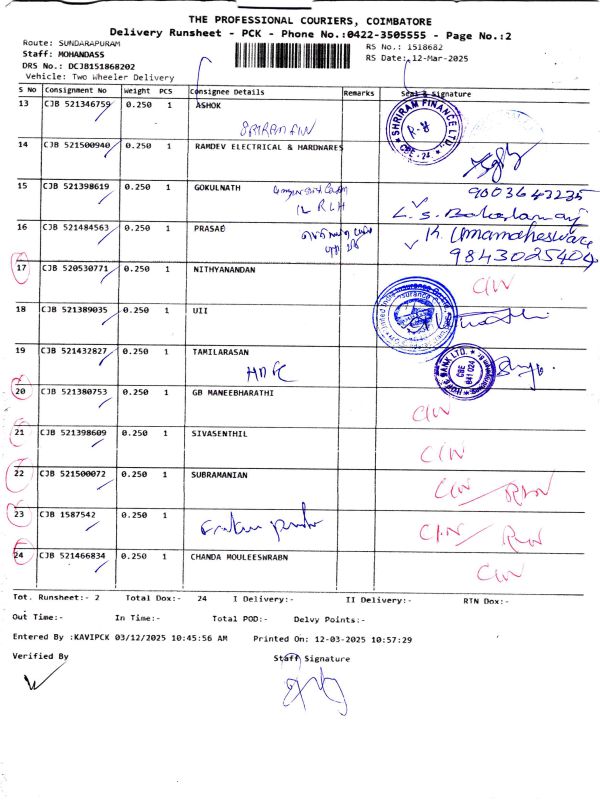 THE PROFESSIONAL COURIERS, COIMBATORE
Delivery Runsheet - PCK - Phone No.:0422-3505555 - Page No.:2
Route: SUNDARAPURAM
RS No.: 1518682
Staff: MOHANDASS
RS Date: 12-Mar-2025
DRS No.: DCJB151868202
Vehicle: Two Wheeler Delivery
S No Consignment No Weight PCS Consignee Details Remarks Seal & Signature
13 CJB 521346759 0.250 1 ASHOK
SRIRAM FIN
SHRIRAM FINANCE LTD.
CBE - 24.
14 CJB 521500940 0.250 1 RAMDEV ELECTRICAL & HARDWARES
15 CJB 521398619 0.250 1 GOKULNATH 9003643235
16 CJB 521484563 0.250 1 PRASAD K. Umamaheswari
9843025404
17 CJB 520530771 0.250 1 NITHYANANDAN C/N
18 CJB 521389035 0.250 1 UII
19 CJB 521432827 0.250 1 TAMILARASAN
HDFC
BANK LTD.
CBE
641 024
20 CJB 521380753 0.250 1 GB MANEEBHARATHI C/N
21 CJB 521398609 0.250 1 SIVASENTHIL C/N
22 CJB 521500072 0.250 1 SUBRAMANIAN C/N
23 CJB 1587542 0.250 1 C/N
24 CJB 521466834 0.250 1 CHANDA MOULEESWRABN C/N
Tot. Runsheet:- 2 Total Dox:- 24 I Delivery:- II Delivery:- RTN Dox:-
Out Time:- In Time:- Total POD:- Delvy Points:-
Entered By :KAVIPCK 03/12/2025 10:45:56 AM Printed On: 12-03-2025 10:57:29
Verified By Staff Signature